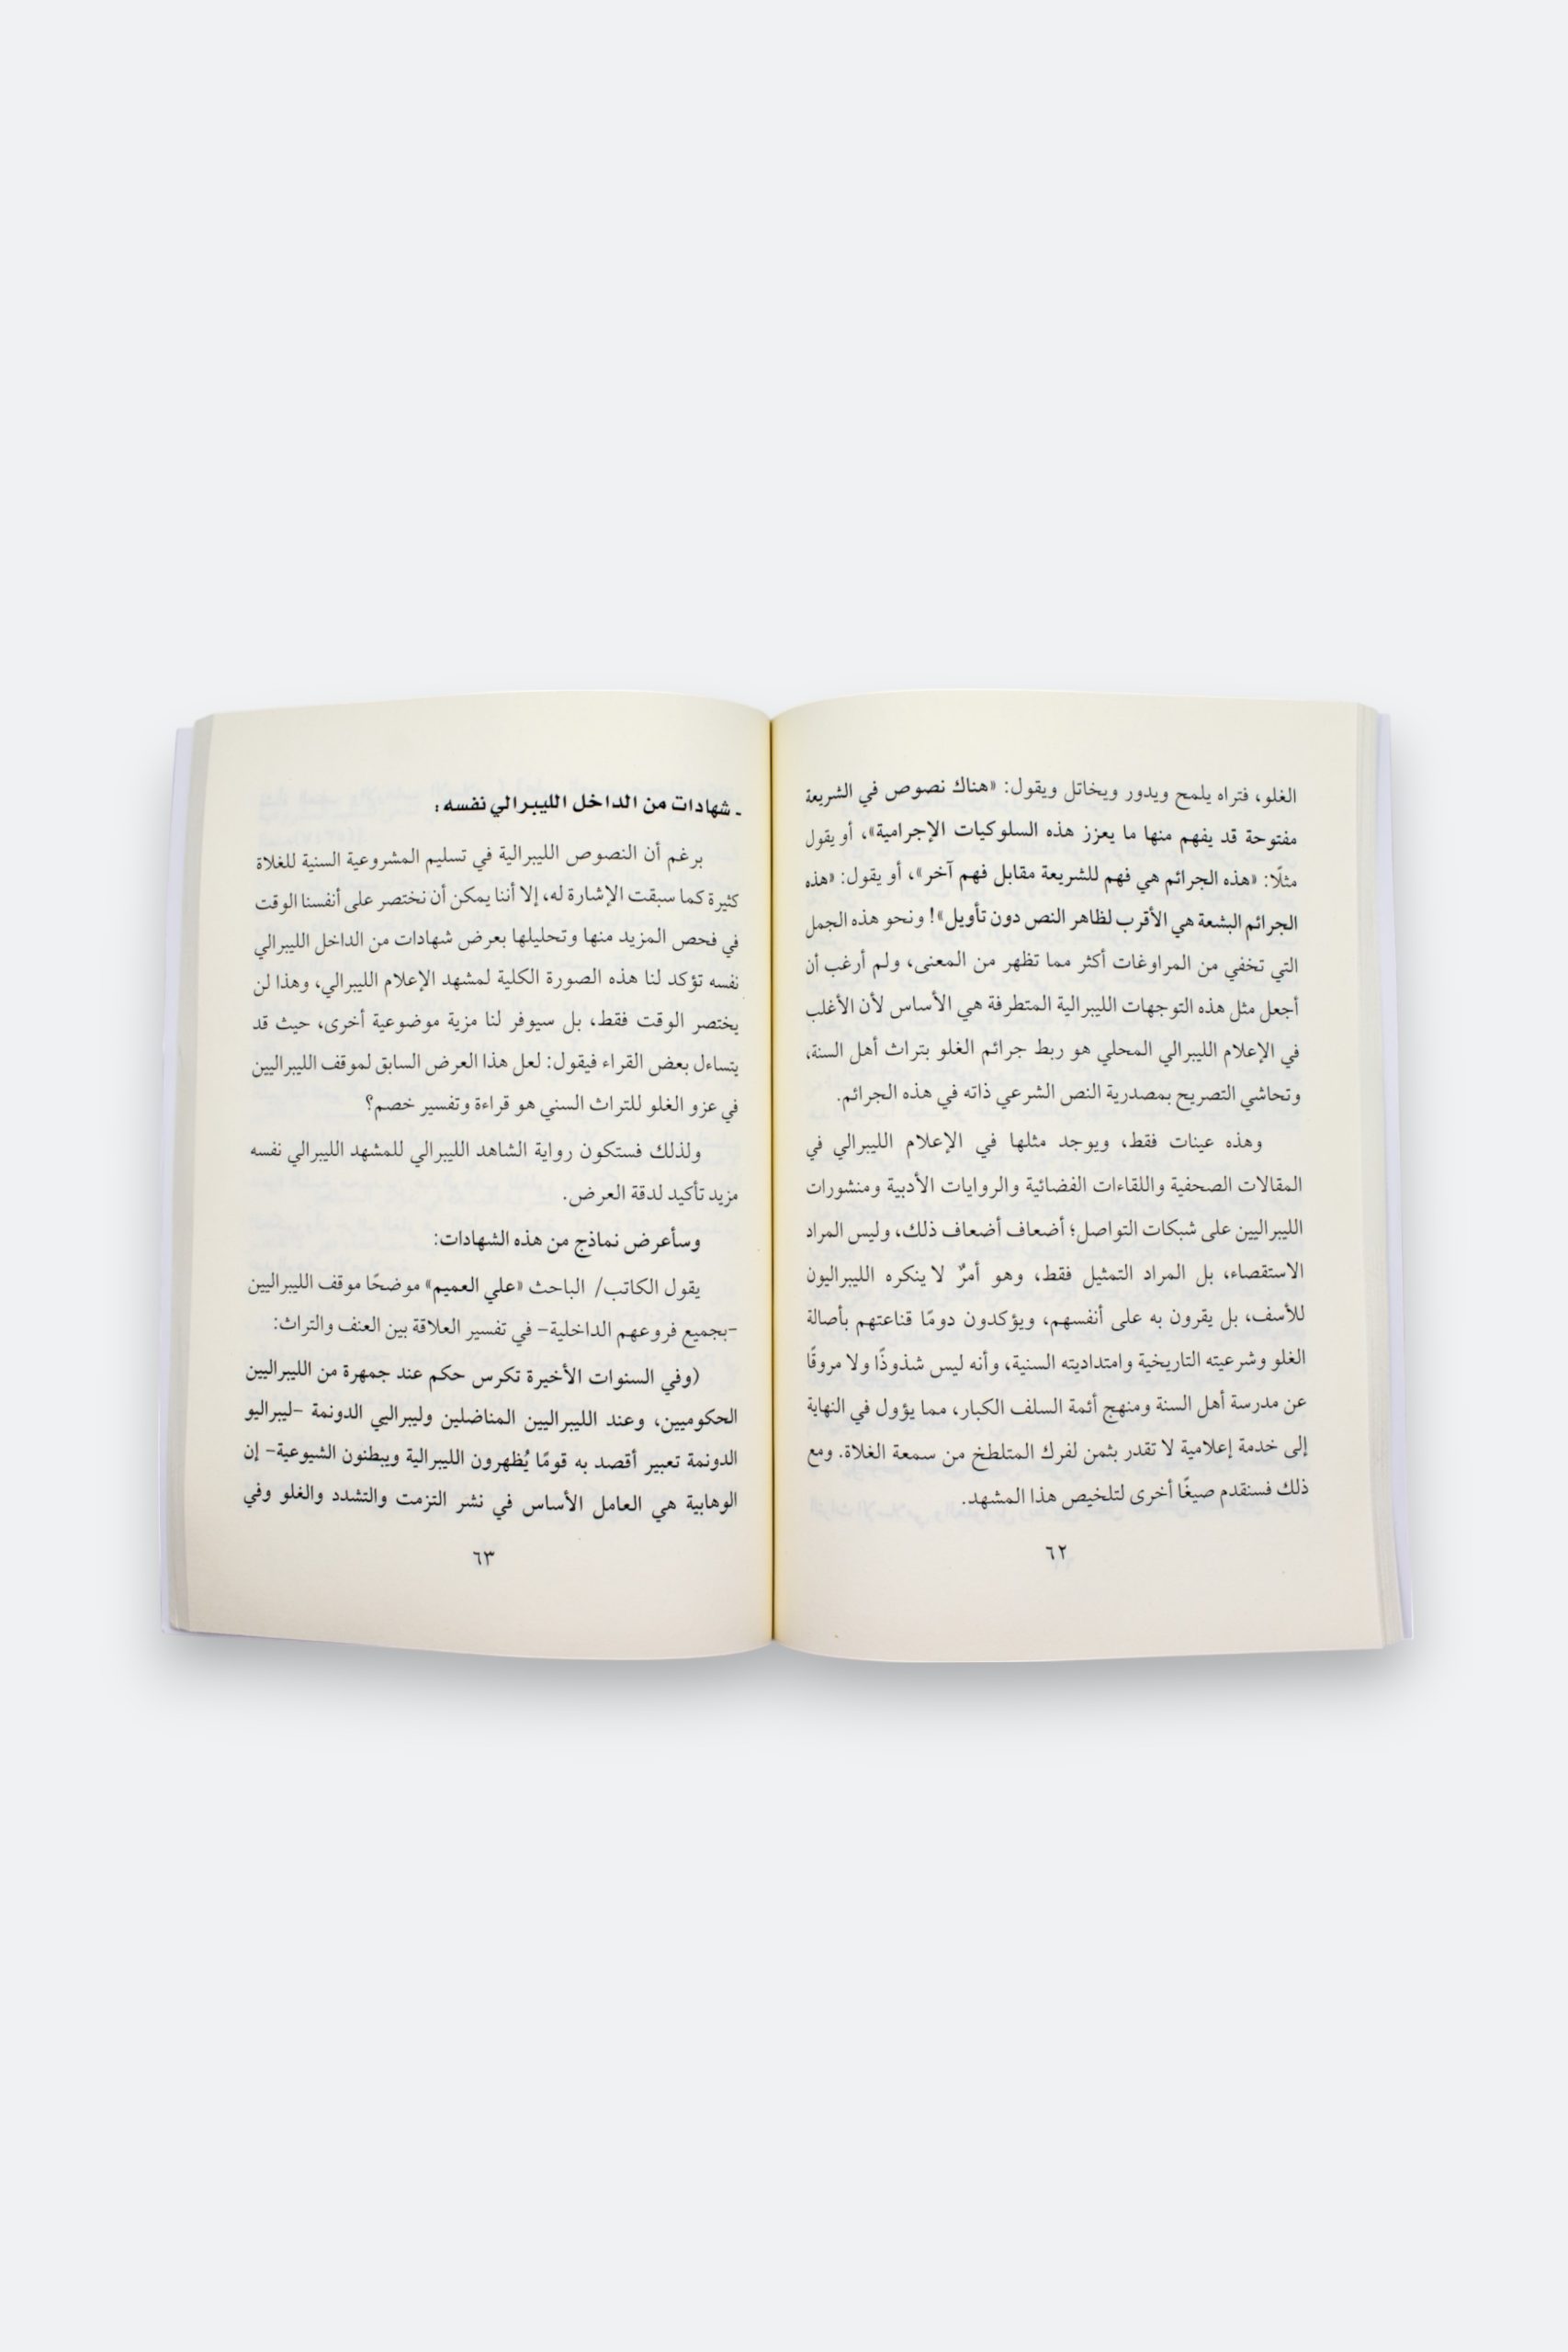 الغلو، فتراه يلمح ويدور ويخاتل ويقول: «هناك نصوص في الشريعة
مفتوحة قد يفهم منها ما يعزز هذه السلوكيات الإجرامية»، أو يقول
مثلًا: «هذه الجرائم هي فهم للشريعة مقابل فهم آخر»، أو يقول: «هذه
الجرائم البشعة هي الأقرب لظاهر النص دون تأويل»! ونحو هذه الجمل
التي تخفي من المراوغات أكثر مما تظهر من المعنى، ولم أرغب أن
أجعل مثل هذه التوجهات الليبرالية المتطرفة هي الأساس لأن الأغلب
في الإعلام الليبرالي المحلي هو ربط جرائم الغلو بتراث أهل السنة،
وتحاشي التصريح بمصدرية النص الشرعي ذاته في هذه الجرائم.
وهذه عينات فقط، ويوجد مثلها في الإعلام الليبرالي في
المقالات الصحفية واللقاءات الفضائية والروايات الأدبية ومنشورات
الليبراليين على شبكات التواصل؛ أضعاف أضعاف ذلك، وليس المراد
الاستقصاء، بل المراد التمثيل فقط، وهو أمرٌ لا ينكره الليبراليون
للأسف، بل يقرون به على أنفسهم، ويؤكدون دومًا قناعتهم بأصالة
الغلو وشرعيته التاريخية وامتداديته السنية، وأنه ليس شذوذًا ولا مروقًا
عن مدرسة أهل السنة ومنهج أئمة السلف الكبار، مما يؤول في النهاية
إلى خدمة إعلامية لا تقدر بثمن لفرك المتلطخ من سمعة الغلاة. ومع
ذلك فسنقدم صيغًا أخرى لتلخيص هذا المشهد.
٦٢
- شهادات من الداخل الليبرالي نفسه:
برغم أن النصوص الليبرالية في تسليم المشروعية السنية للغلاة
كثيرة كما سبقت الإشارة له، إلا أننا يمكن أن نختصر على أنفسنا الوقت
في فحص المزيد منها وتحليلها بعرض شهادات من الداخل الليبرالي
نفسه تؤكد لنا هذه الصورة الكلية لمشهد الإعلام الليبرالي، وهذا لن
يختصر الوقت فقط، بل سيوفر لنا مزية موضوعية أخرى، حيث قد
يتساءل بعض القراء فيقول: لعل هذا العرض السابق لموقف الليبراليين
في عزو الغلو للتراث السني هو قراءة وتفسير خصم؟
ولذلك فستكون رواية الشاهد الليبرالي للمشهد الليبرالي نفسه
مزيد تأكيد لدقة العرض.
وسأعرض نماذج من هذه الشهادات:
يقول الكاتب/ الباحث «علي العميم» موضحًا موقف الليبراليين
-بجميع فروعهم الداخلية- في تفسير العلاقة بين العنف والتراث:
(وفي السنوات الأخيرة تكرس حكم عند جمهرة من الليبراليين
الحكوميين، وعند الليبراليين المناضلين وليبراليي الدونمة -ليبراليو
الدونمة تعبير أقصد به قومًا يُظهرون الليبرالية ويبطنون الشيوعية- إن
الوهابية هي العامل الأساس في نشر التزمت والتشدد والغلو وفي
٦٣